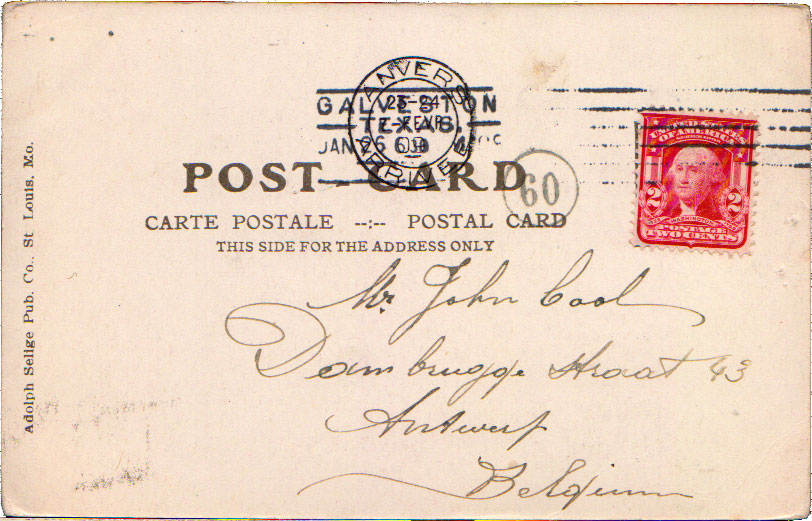 ANVERS
23-24
7 FEVR
09
ARRIVEE
GALVESTON
TEXAS.
JAN 26
POST-CARD
60
CARTE POSTALE --:-- POSTAL CARD
THIS SIDE FOR THE ADDRESS ONLY
OF AMERICA
2 2
WASHINGTON
POSTAGE
TWO CENTS
Mr John Cool
Dambrugge Straat 43
Antwerp
Belgium
Adolph Selige Pub. Co., St Louis, Mo.